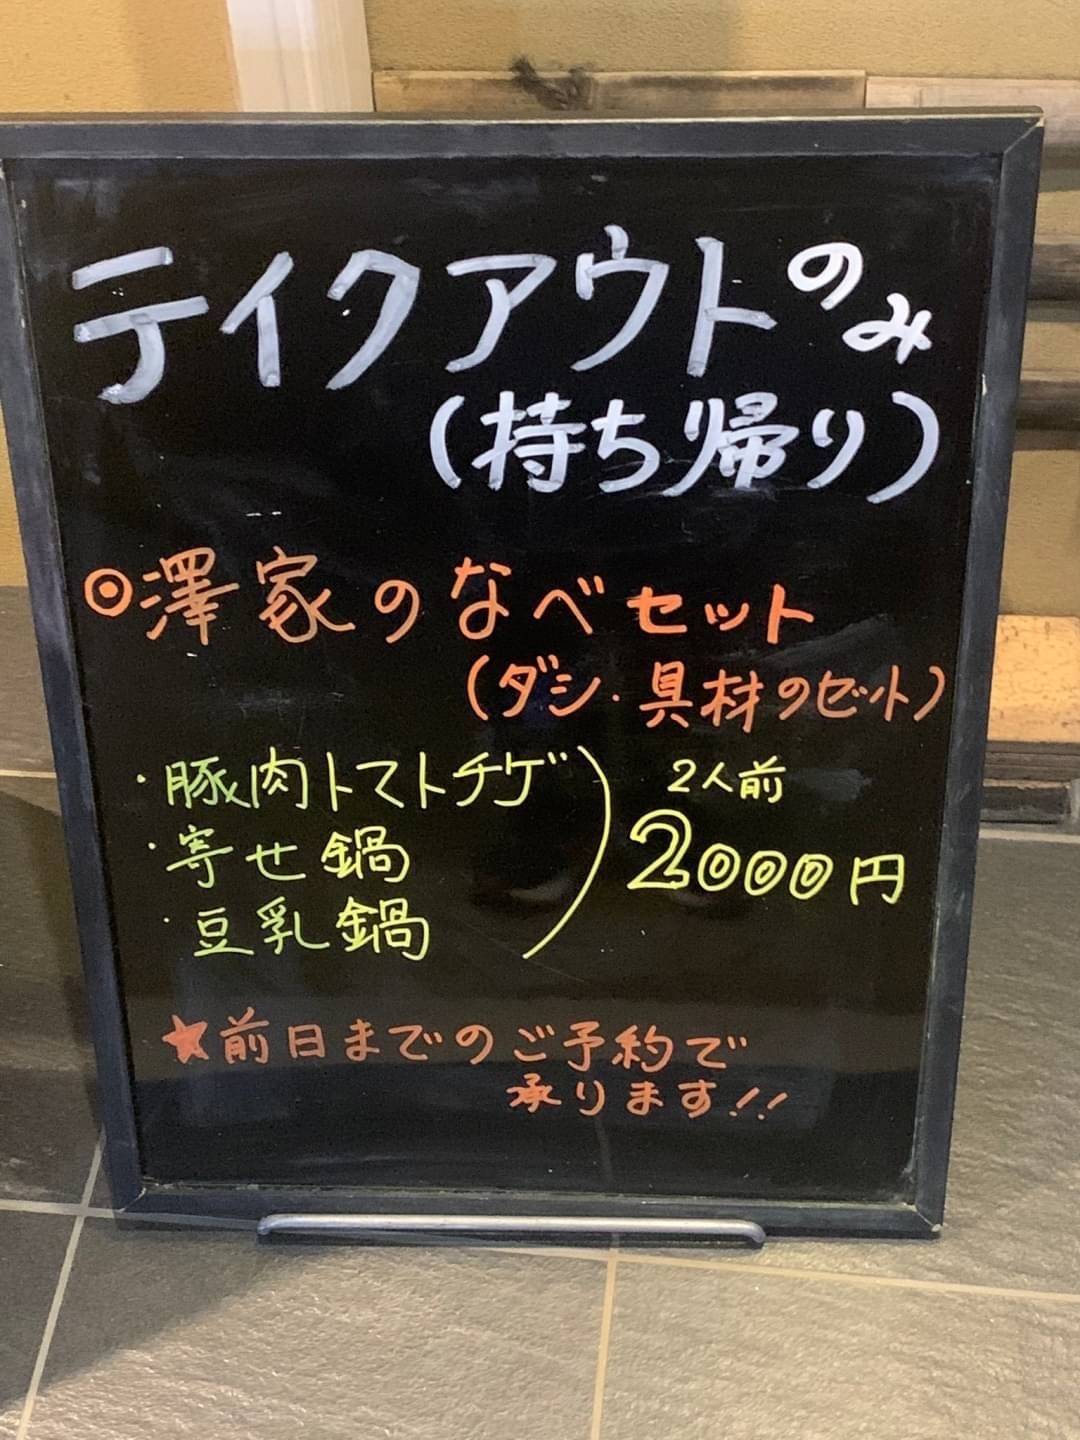 テイクアウトのみ
(持ち帰り)
◎澤家のなべセット
(ダシ・具材のセット)
・豚肉トマトチゲ
・寄せ鍋
・豆乳鍋
2人前
2000円
★前日までのご予約で
承ります!!